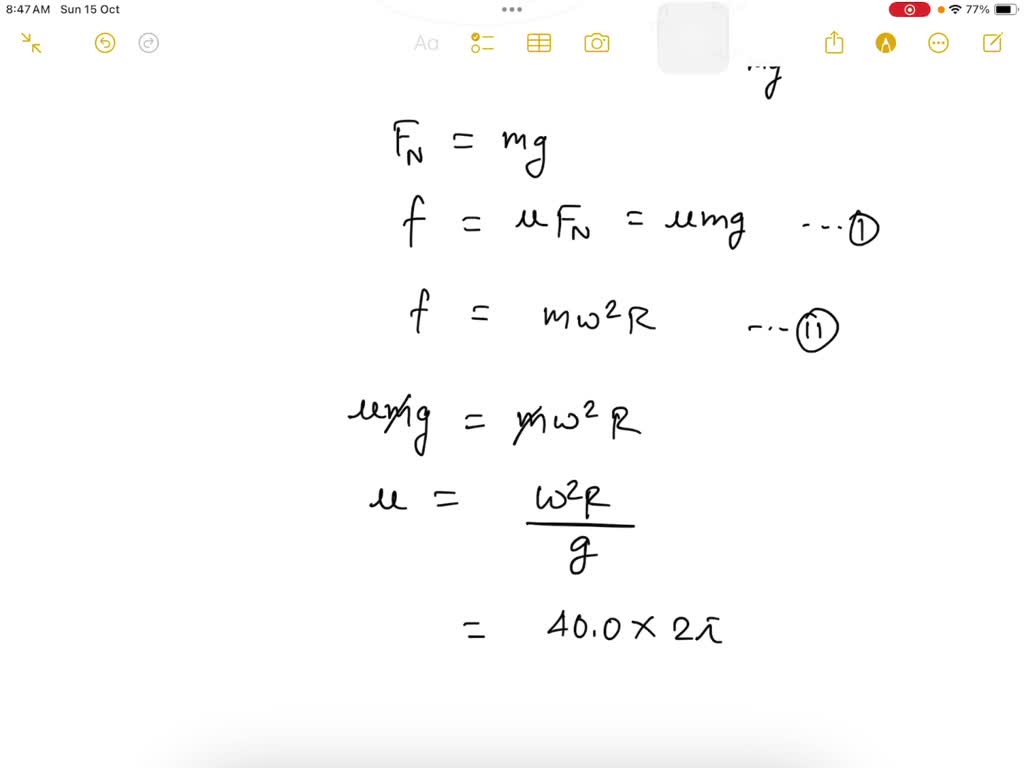 8:47 AM Sun 15 Oct 77%
Aa
mg
F_N = mg
f = μF_N = μmg ---- ①
f = mω²R ---- ⓘⓘ
μmg = mω²R
μ = ω²R / g
= 40.0 × 2π